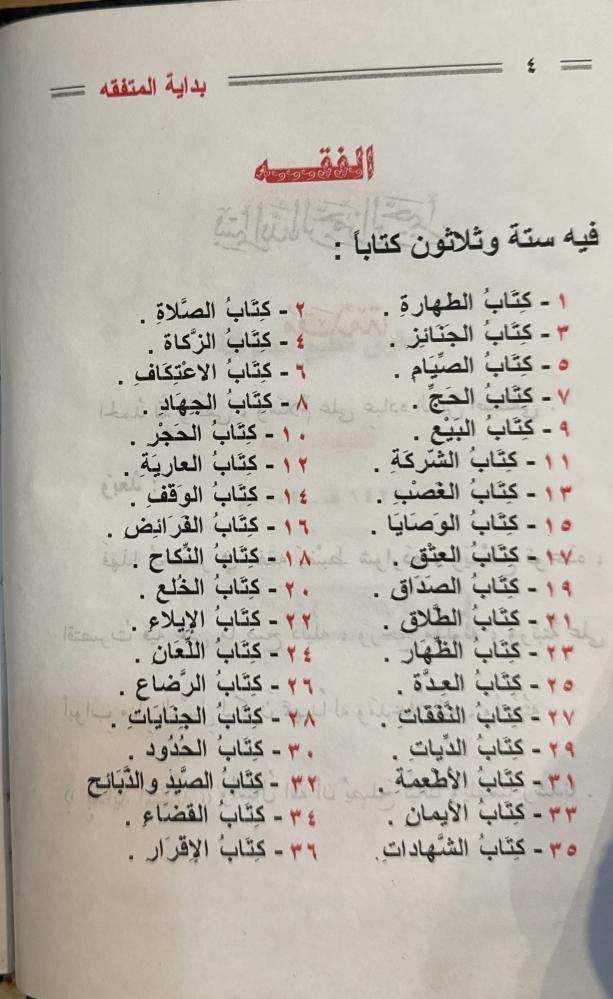 ٤ بداية المتفقه
الفقــه
فيه ستة وثلاثون كتاباً :
١ - كِتَابُ الطهارةِ . ٢ - كِتَابُ الصَّلاةِ .
٣ - كِتَابُ الجَنَائِزِ . ٤ - كِتَابُ الزَّكاة .
٥ - كِتَابُ الصِّيَامِ . ٦ - كِتَابُ الاعْتِكَافِ .
٧ - كِتَابُ الحَجِّ . ٨ - كِتَابُ الجِهَادِ .
٩ - كِتَابُ البَيْعِ . ١٠ - كِتَابُ الحَجْرِ .
١١ - كِتَابُ الشّرِكَةِ . ١٢ - كِتَابُ العارِيَةِ .
١٣ - كِتَابُ الغَصْبِ . ١٤ - كِتَابُ الوَقفِ .
١٥ - كِتَابُ الوَصَايَا . ١٦ - كِتَابُ الفَرَائِضِ .
١٧ - كِتَابُ العِتْقِ . ١٨ - كِتَابُ النِّكاح .
١٩ - كِتَابُ الصَدَاق . ٢٠ - كِتَابُ الخُلع .
٢١ - كِتَابُ الطَّلاق . ٢٢ - كِتَابُ الإيلاءِ .
٢٣ - كِتَابُ الظِّهَارِ . ٢٤ - كِتَابُ اللِّعَانِ .
٢٥ - كِتَابُ العِدَّة . ٢٦ - كِتَابُ الرَّضاع .
٢٧ - كِتَابُ النَّفَقاتِ . ٢٨ - كِتَابُ الجِنَايَاتِ .
٢٩ - كِتَابُ الدِّياتِ . ٣٠ - كِتَابُ الحُدُود .
٣١ - كِتَابُ الأطعِمَة . ٣٢ - كِتَابُ الصَّيْدِ والذَّبَائِح
٣٣ - كِتَابُ الأيمان . ٣٤ - كِتَابُ القَضَاءِ .
٣٥ - كِتَابُ الشَّهاداتِ. ٣٦ - كِتَابُ الإِقرَار .